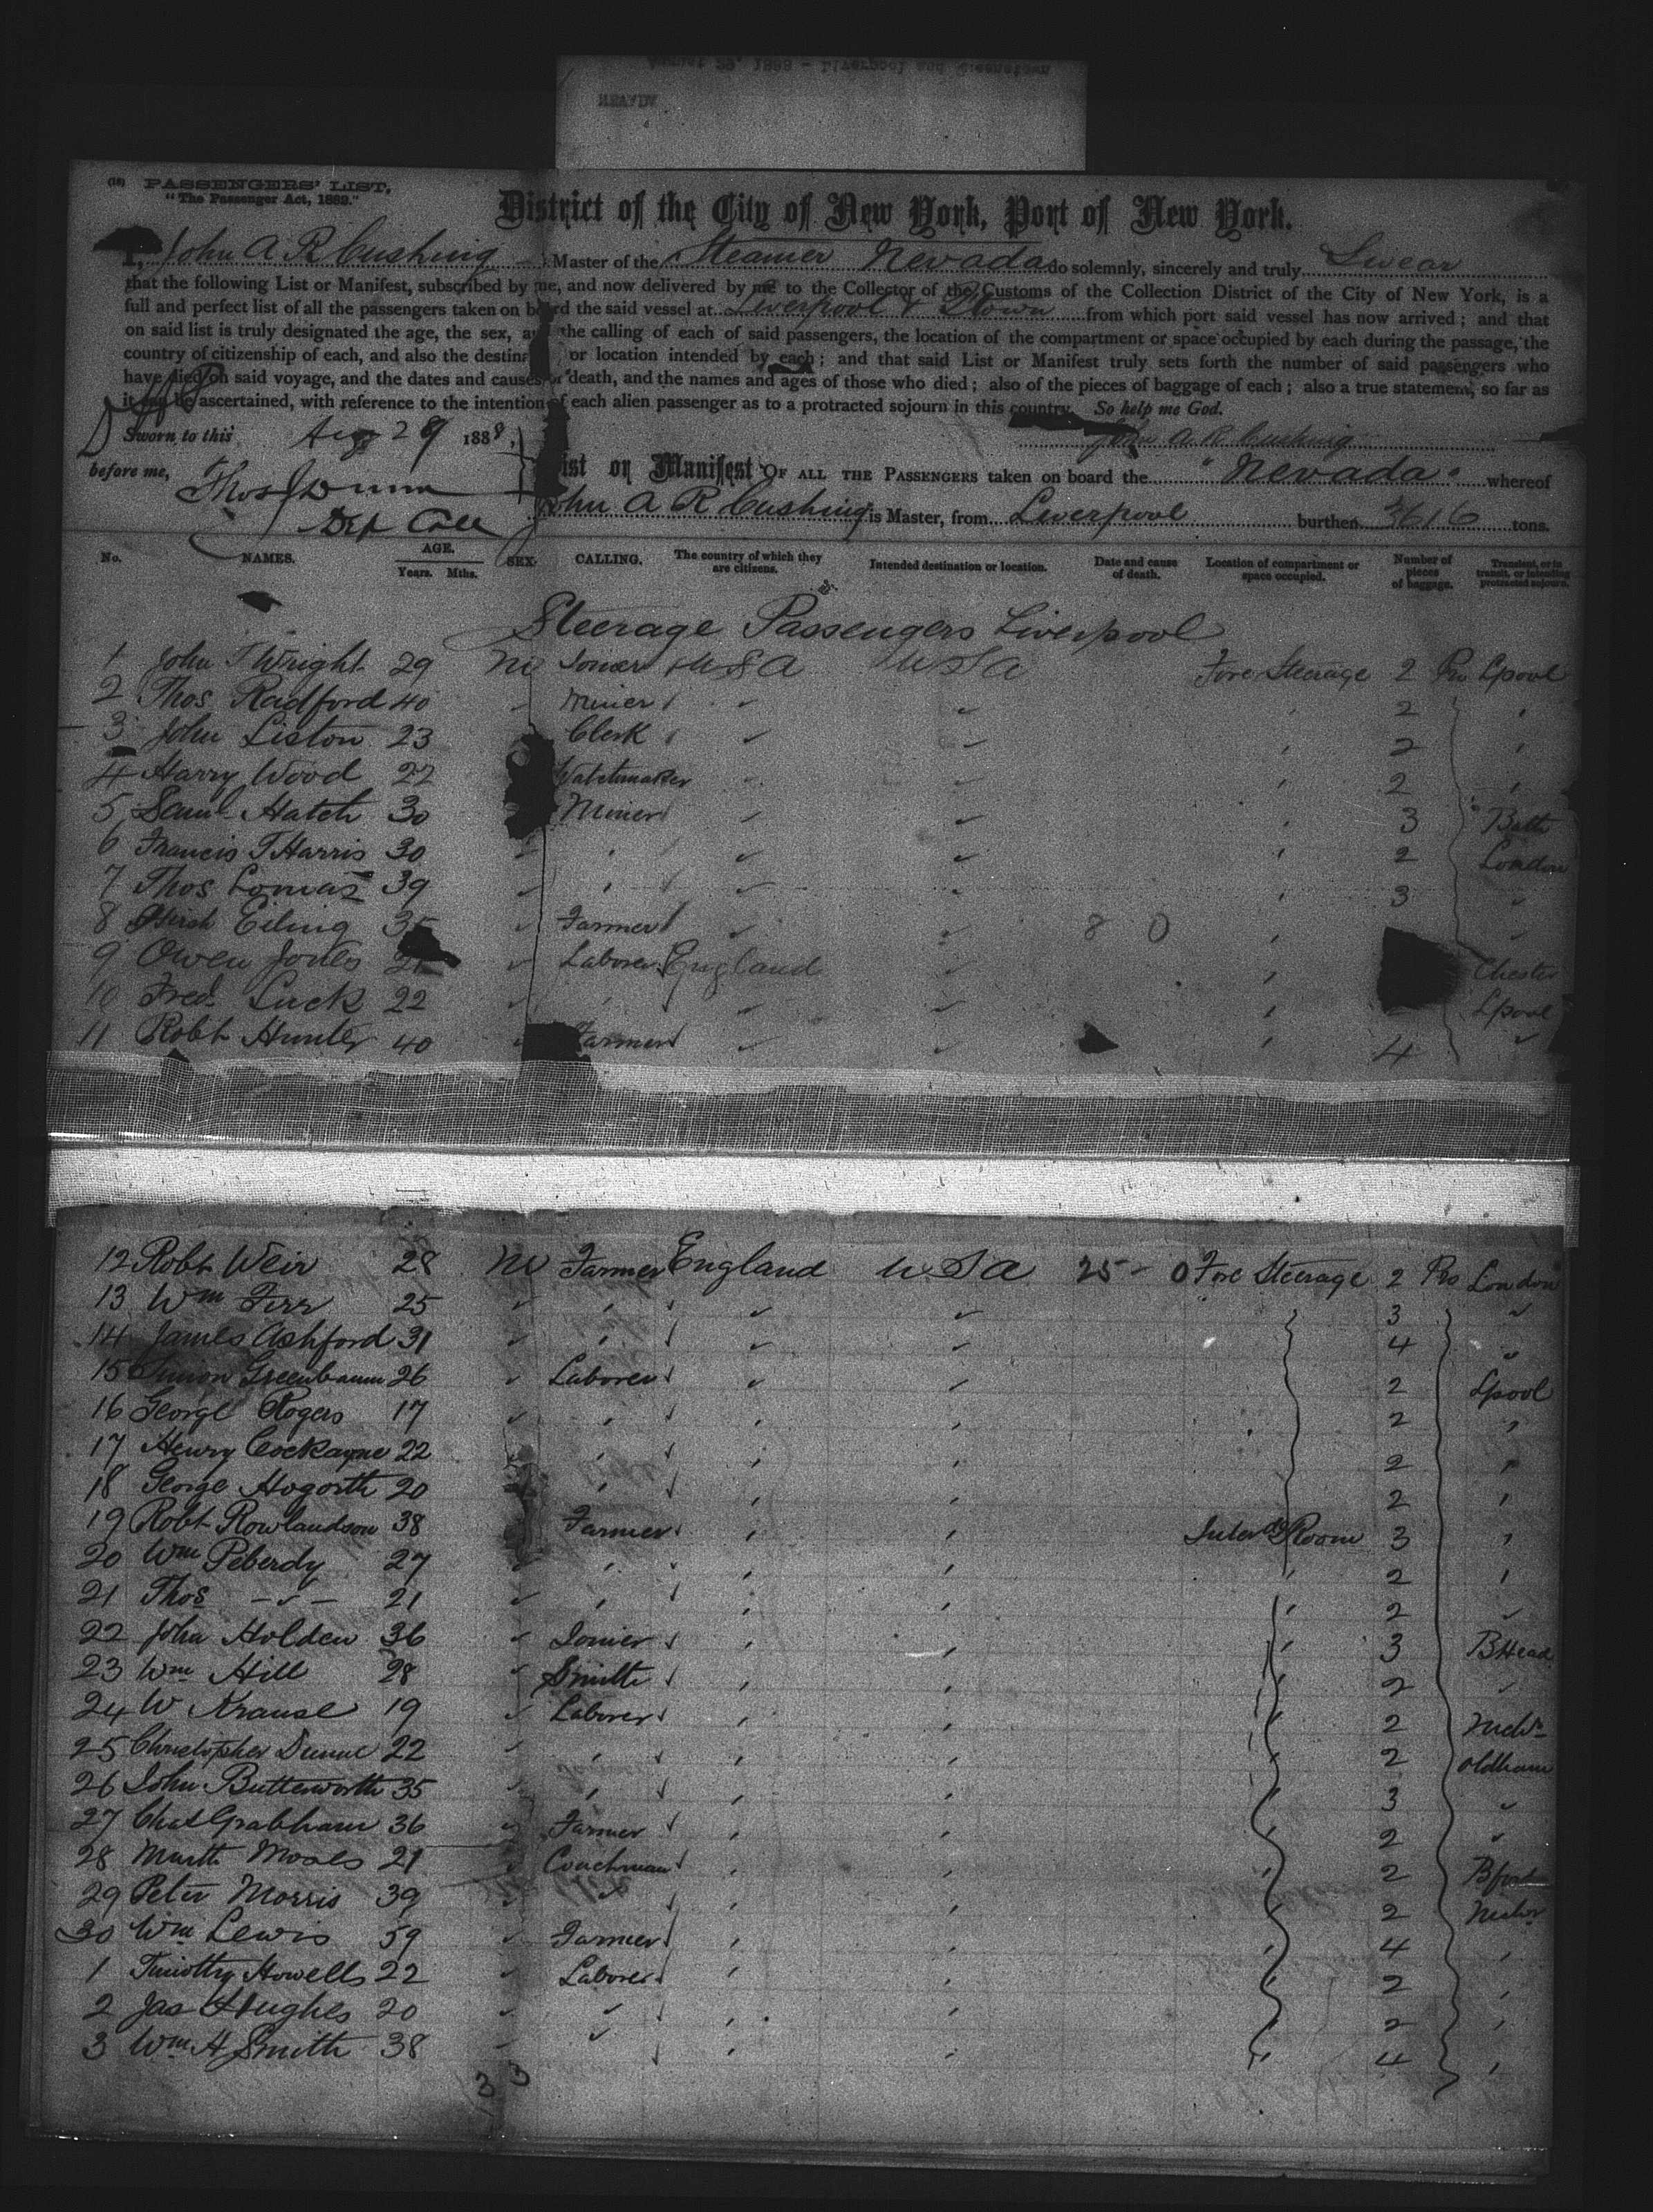 August 29, 1888 - Liverpool and Queenstown
NEVADA
(18) PASSENGERS' LIST.
"The Passenger Act, 1882."
District of the City of New York, Port of New York.
I, John A R Cushing Master of the Steamer Nevada do solemnly, sincerely and truly Swear
that the following List or Manifest, subscribed by me, and now delivered by me to the Collector of the Customs of the Collection District of the City of New York, is a
full and perfect list of all the passengers taken on board the said vessel at Liverpool & Qtown from which port said vessel has now arrived; and that
on said list is truly designated the age, the sex, and the calling of each of said passengers, the location of the compartment or space occupied by each during the passage, the
country of citizenship of each, and also the destination or location intended by each; and that said List or Manifest truly sets forth the number of said passengers who
have died on said voyage, and the dates and causes of death, and the names and ages of those who died; also of the pieces of baggage of each; also a true statement, so far as
it can be ascertained, with reference to the intention of each alien passenger as to a protracted sojourn in this country. So help me God.
Sworn to this Aug 29 1888, John A R Cushing
before me, Thos Dunn
List or Manifest OF ALL THE PASSENGERS taken on board the "Nevada" whereof
Dep Coll
John A R Cushing is Master, from Liverpool burthen 3616 tons.
No. NAMES. AGE. Years. Mths. SEX. CALLING. The country of which they are citizens. Intended destination or location. Date and cause of death. Location of compartment or space occupied. Number of pieces of baggage. Transient, or in transit, or intending protracted sojourn.
Steerage Passengers Liverpool
1 John T Wright 29 M Joiner USA USA Fore Steerage 2 Pro Lpool
2 Thos Radford 40 Miner 2
3 John Liston 23 Clerk 2
4 Harry Wood 22 Watchmaker 2
5 Saml Hatch 30 Miner 3
6 Francis T Harris 30 2 London
7 Thos Lomas 39 3
8 Eiling 35 Farmer 8 0
9 Owen Jones 21 Laborer England Chester
10 Fred Luck 22 Lpool
11 Robt Hunter 40 Farmer 4
12 Robt Weir 28 M Farmer England USA 25 - 0 Fore Steerage 2 Pro London
13 Wm 25 3
14 James Ashford 31 4
15 Simon Greenbaum 26 Laborer 2 Lpool
16 George Rogers 17 2
17 Henry Cockayne 22 2
18 George Hogorth 20 2
19 Robt Rowlandson 38 Farmer Room 3
20 Wm Peberdy 27 2
21 Thos -"- 21 2
22 John Holden 36 Joiner 3 BHead
23 Wm Hill 28 Smith 2
24 W Krause 19 Laborer 2 Mchr
25 Christopher Dunne 22 2 Oldham
26 John Butterworth 35 3
27 Chas Grabham 36 Farmer 2
28 Moses 21 Coachman 2
29 Peter Morris 39 2 Mchr
30 Wm Lewis 59 Farmer 4
1 Timothy Howells 22 Laborer 2
2 Jas Hughes 20 2
3 Wm H Smith 38 4
33